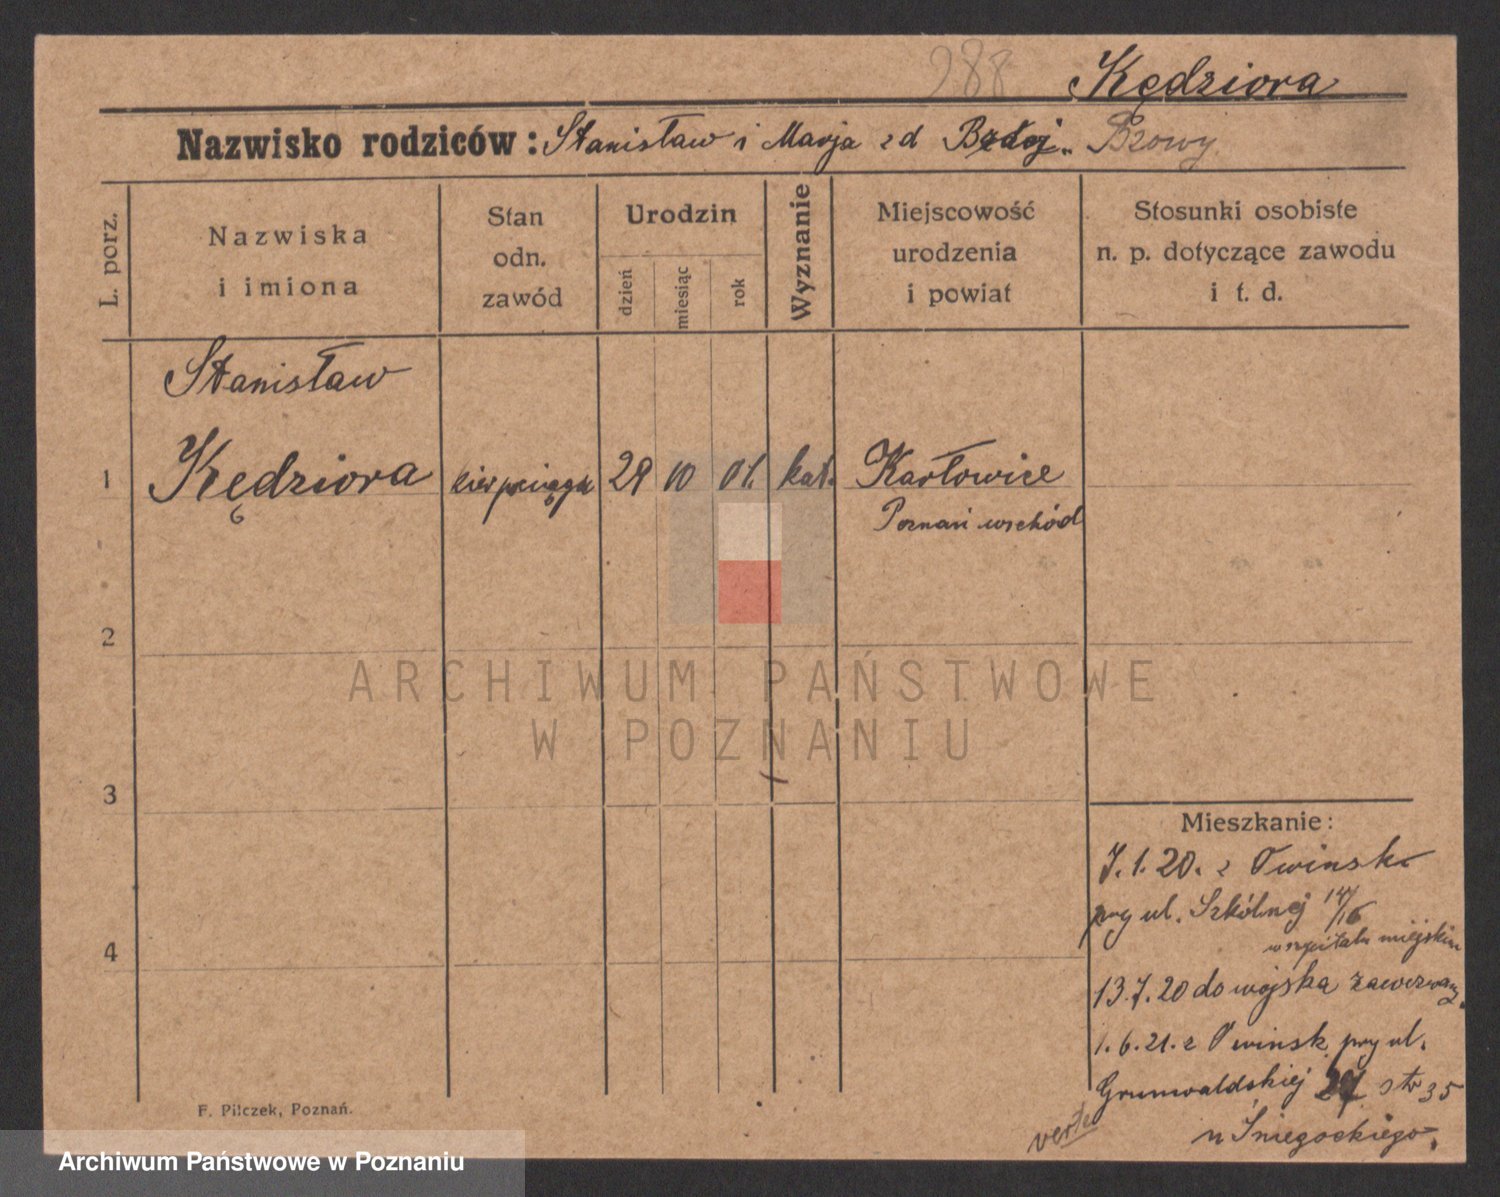 988 Kędziora
Nazwisko rodziców: Stanisław i Marja zd Browy
L. porz.
Nazwiska
i imiona
Stan
odn.
zawód
Urodzin
dzień
miesiąc
rok
Wyznanie
Miejscowość
urodzenia
i powiat
Stosunki osobiste
n. p. dotyczące zawodu
i t. d.
Stanisław
1 Kędziora 29 10 01. kat. Karłowice
Poznań wschód
2
ARCHIWUM PAŃSTWOWE
W POZNANIU
3
Mieszkanie:
7.1.20. z Owinsk
przy ul. Szkólnej 14/16
w szpitalu miejskim
4
13.7.20 do wojska zawezwany.
1.6.21. z Owinsk przy ul.
Grunwaldskiej 27 str 35
u Śniegockiego.
verte
F. Pilczek, Poznań.
Archiwum Państwowe w Poznaniu